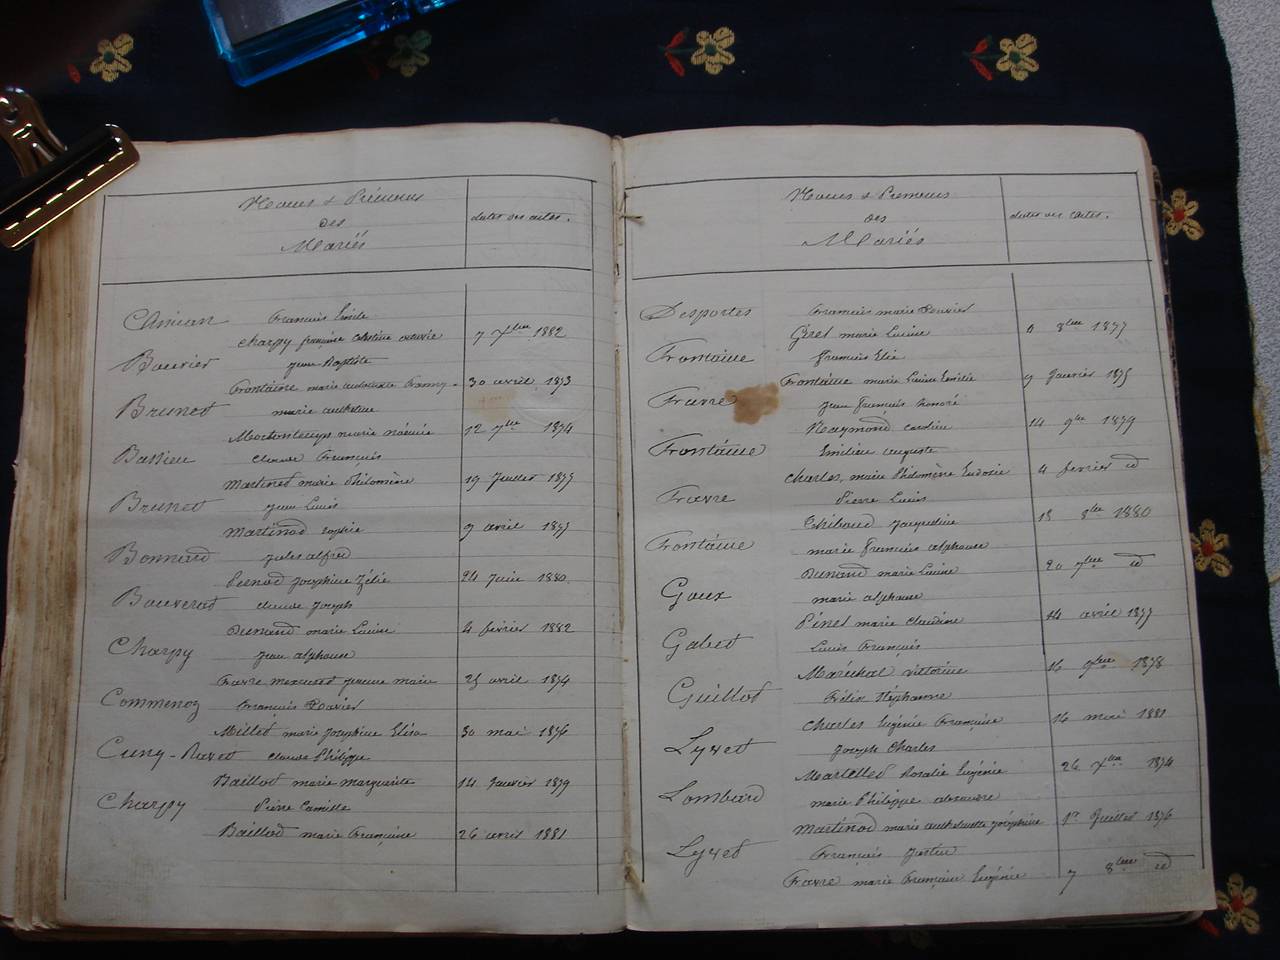 Noms et Prénoms
des
Mariés
dates des actes.
François Emile
Charpy françoise célestine octavie 7 Xbre 1882
Bouvier Jean Baptiste
Frontaine marie 30 avril 1873
Brunod marie anthelme
marie noémie 12 7bre 1874
Bassieu claude François
Martinod marie Philomène 19 Juillet 1877
Brunet Jean Louis
Martinod sophie 9 avril 1877
Bonnard jules alfred
Pernod Joséphine Zélie 24 Juin 1880
Bouverod claude Joseph
Dunand marie Louise 4 février 1882
Charpy Jean alphonse
Favre jeanne marie 25 avril 1874
Commenoz François Xavier
Milled marie joséphine Eliza 30 mai 1876
Cuny-Ravet claude Philippe
Baillod marie marguerite 14 Janvier 1879
Charpy Pierre Camille
Baillod marie Françoise 26 avril 1881
Noms et Prénoms
des
Mariés
dates des actes.
Desportes François marie Xavier
Girel marie Louise 6 8bre 1877
Frontaine François Elie
Frontaine marie Louise Emilie 9 Janvier 1875
Favre Jean François honoré
Raymond caroline 14 9bre 1879
Frontaine Emilien auguste
Charles, marie Philomène Eudoxie 4 février id
Favre Pierre Louis
Thibaud Jacqueline 18 8bre 1880
Frontaine marie François alphonse
Dunand marie Louise 20 7bre id
Goux marie alphonse
Pinel marie claudine 14 avril 1877
Gabet Louis François
Maréchal victorine 16 9bre 1878
Guillod Félix Stéphanne
Charles Eugénie Françoise 16 mai 1881
Lyxed Joseph Charles
Martelled Rosalie Eugénie 26 Xbre 1874
Lombard marie Philippe alexandre
Martinod marie anthelmette joséphine 1er Juillet 1876
Lyxed François Justin
Favre marie Françoise Eugénie 7 8bre id